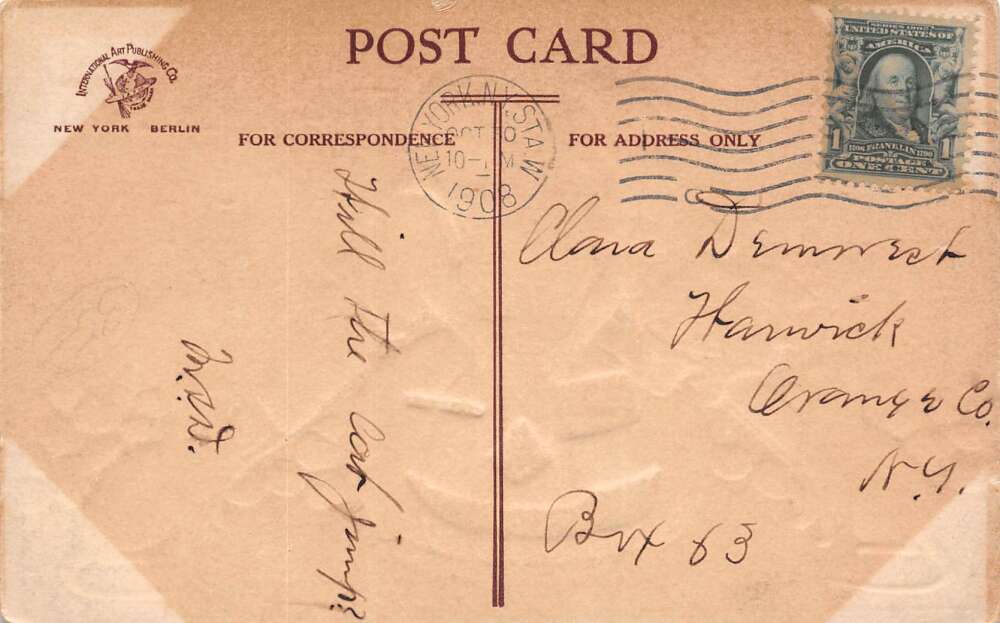 POST CARD
INTERNATIONAL ART PUBLISHING CO.
NEW YORK BERLIN
FOR CORRESPONDENCE
FOR ADDRESS ONLY
NEW YORK, N.Y. STA. W
OCT 30
10- M
1908
SERIES 1902
UNITED STATES OF
AMERICA
1706 FRANKLIN 1790
POSTAGE
1 ONE CENT 1
Will the cat jump?
M.W.
Clara Demorest
Warwick
Orange Co.
N.Y.
Box 63